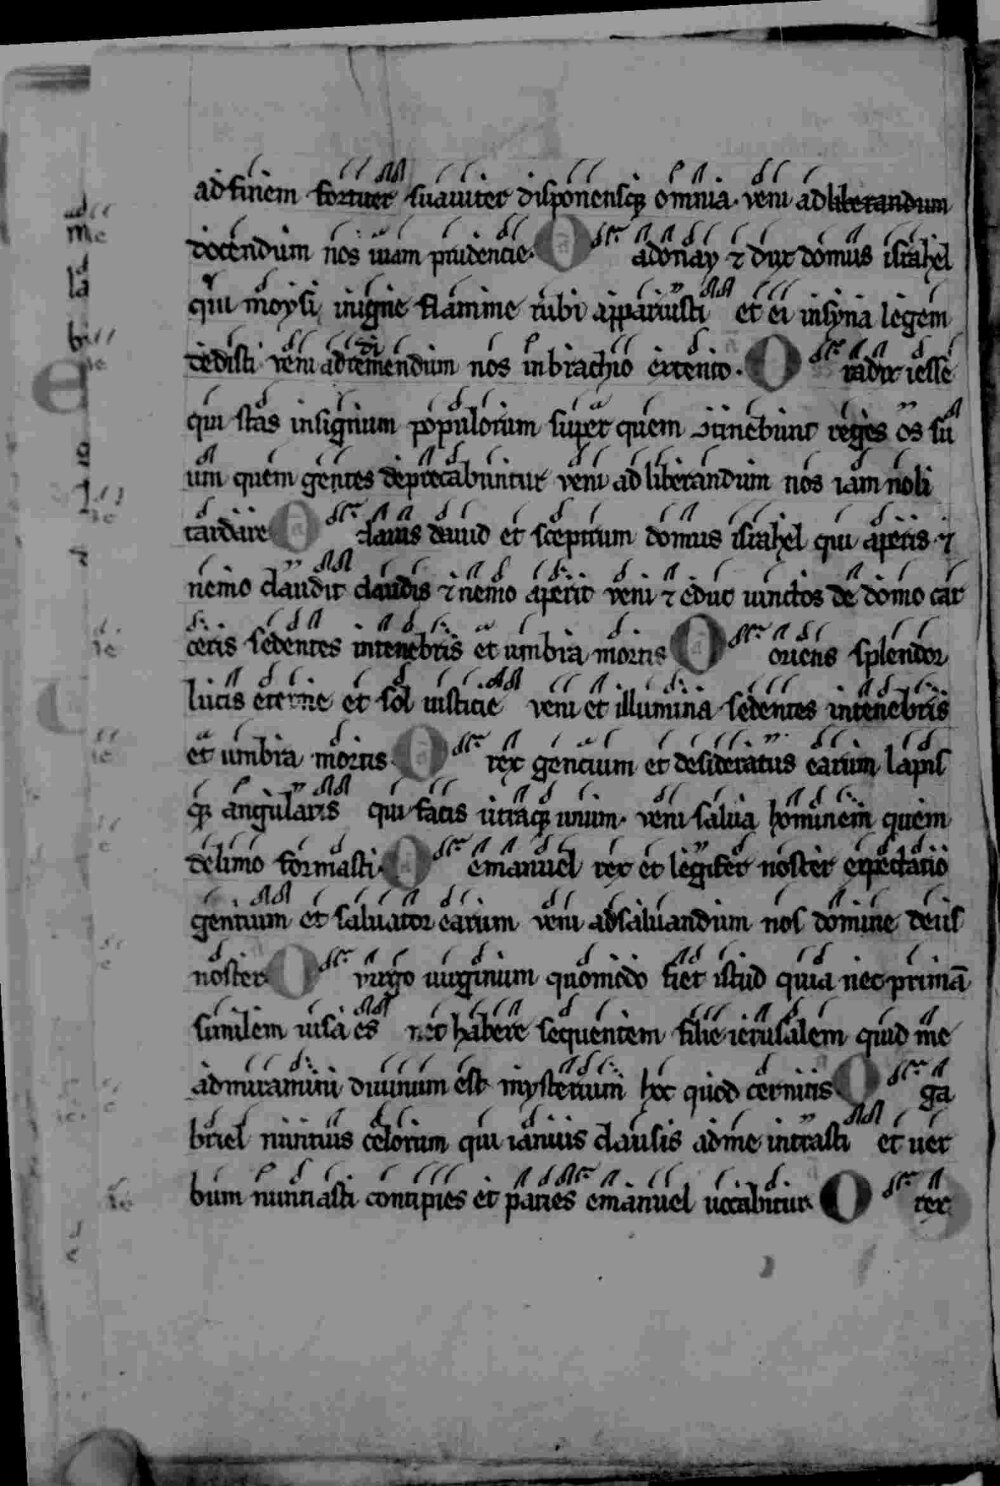 ad finem fortiter suauiter disponensq; omnia. veni ad liberandum
docendum nos uiam prudencie. O adonay ⁊ dux domus israhel
qui moysi inigne flamme rubi apparuisti et ei insyna legem
dedisti veni ad redimendum nos inbrachio extento. O radix iesse
qui stas insignum populorum super quem ɔtinebunt reges os su
um quem gentes deprecabuntur veni ad liberandum nos iam noli
tardare O clauis dauid et sceptrum domus israhel qui aperis ⁊
nemo claudit claudis ⁊ nemo aperit veni ⁊ educ uinctos de domo car
ceris sedentes intenebris et umbra mortis O oriens splendor
lucis eterne et sol iusticie veni et illumina sedentes intenebris
et umbra mortis O rex gencium et desideratus earum lapis
q; angularis qui facis utraq; unum. veni salua hominem quem
delimo formasti. O emanuel rex et legifer noster expectatio
gentium et saluator earum veni ad saluandum nos domine deus
noster O uirgo uirginum quomodo fiet istud quia nec primā
similem uisa es nec habere sequentem filie ierusalem quid me
admiramini diuinum est mysterium hoc quod cernitis O ga
briel nuntius celorum qui ianuis clausis ad me intrasti et uer
bum nuntiasti concipies et paries emanuel uocabitur. O rex